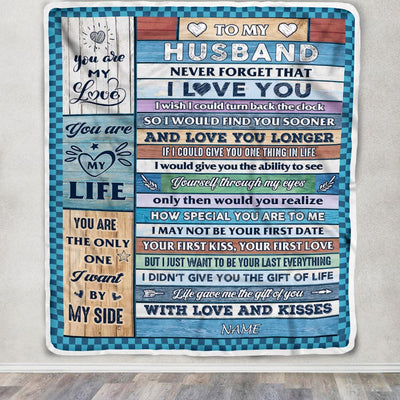 you are
MY
Love
You are
MY
LIFE
YOU ARE
THE ONLY
ONE
I want
BY
MY SIDE
TO MY
HUSBAND
NEVER FORGET THAT
I LOVE YOU
I wish I could turn back the clock
SO I WOULD FIND YOU SOONER
AND LOVE YOU LONGER
IF I COULD GIVE YOU ONE THING IN LIFE
I would give you the ability to see
Yourself through my eyes
only then would you realize
HOW SPECIAL YOU ARE TO ME
I MAY NOT BE YOUR FIRST DATE
YOUR FIRST KISS, YOUR FIRST LOVE
BUT I JUST WANT TO BE YOUR LAST EVERYTHING
I DIDN'T GIVE YOU THE GIFT OF LIFE
Life gave me the gift of you
WITH LOVE AND KISSES
NAME